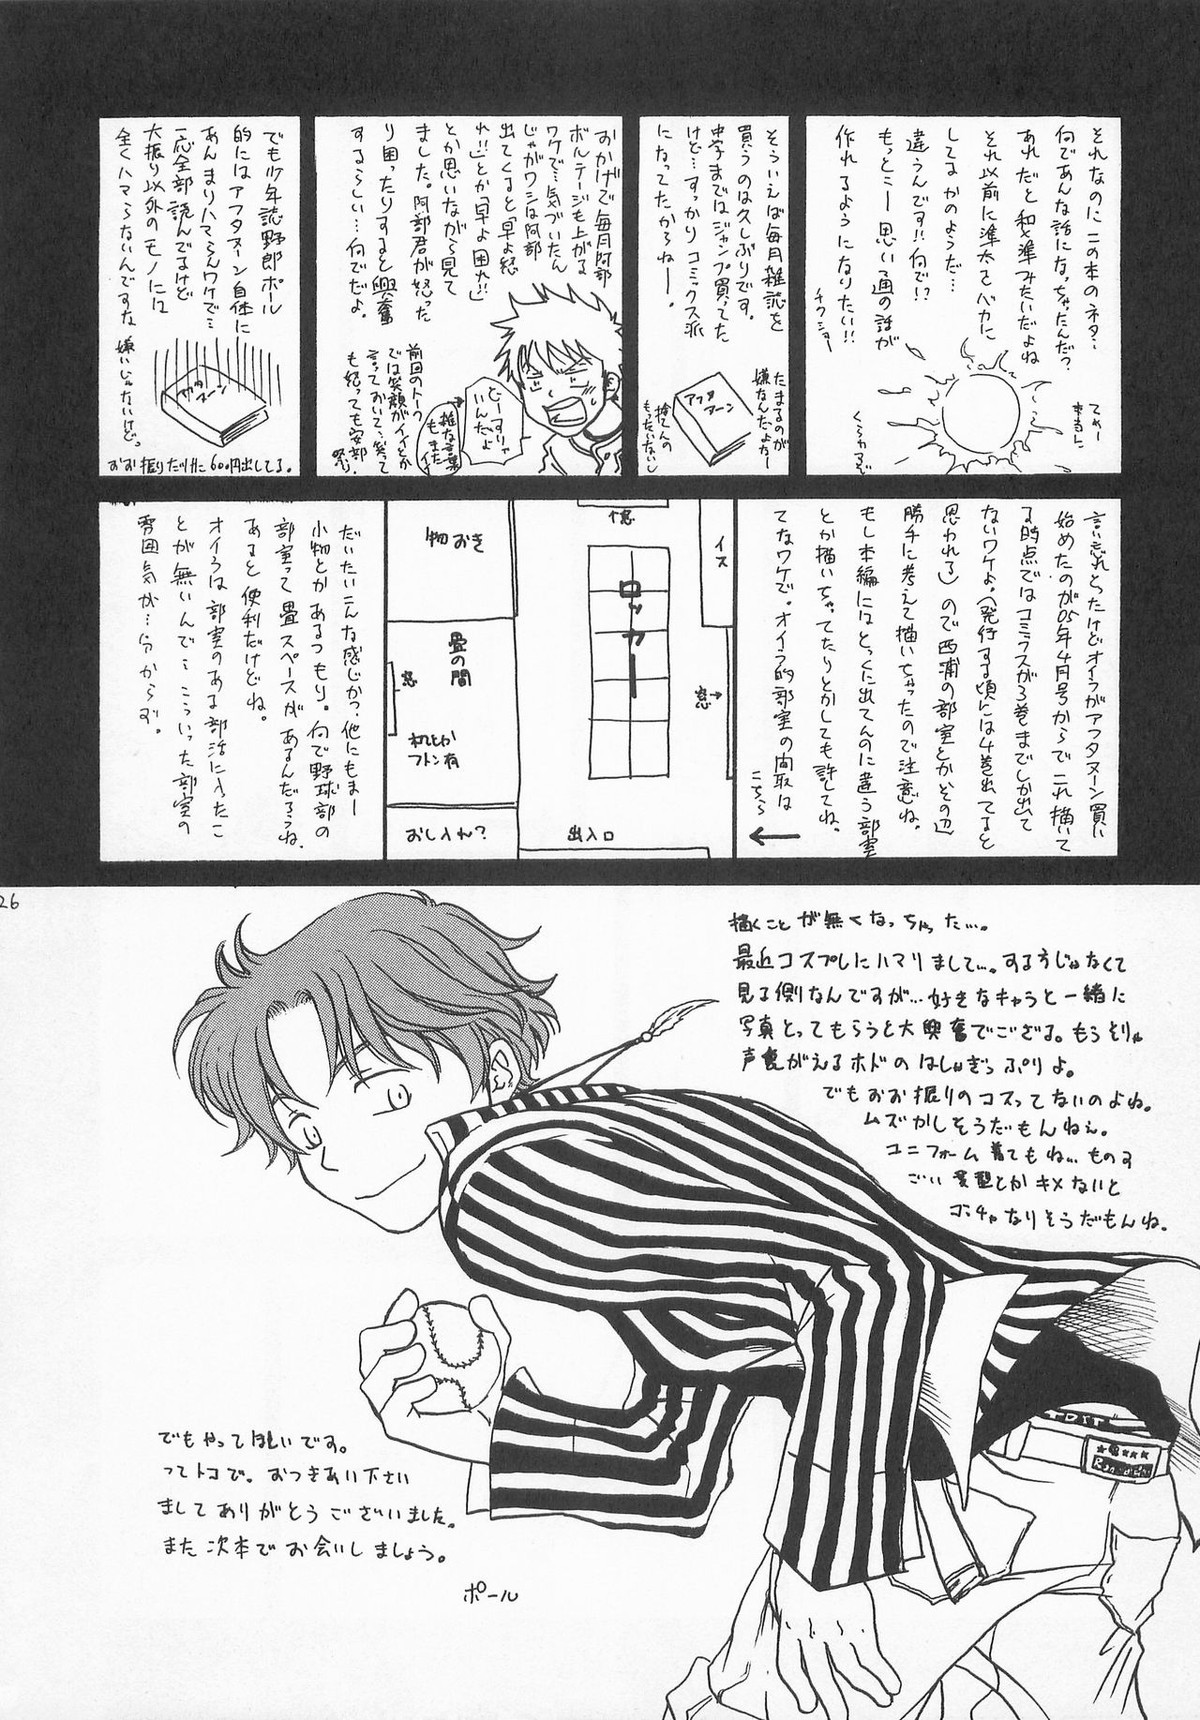 それなのにこの本のネタ…
何であんな話になっちゃったんだ?
あれだと和×準みたいだよね
それ以前に準太をバカに
してるかのようだ…
違うんです!!何で!?
もっとこー思い通の話が
作れるようになりたい!!
チクショー
てめー
本当に
くらわるで
そういえば毎月雑誌を
買うのは久しぶりです。
中学まではジャンプ買ってた
けど…すっかりコミックス派
になってたからねー。
たまるのが
嫌なんだよねー
捨てんの
もったいないし
アフタヌーン
おかげで毎月阿部
ボルテージも上がる
ワケで…気づいたん
じゃがワシは阿部
出てくると「早よ怒
れ!!」とか「早よ困れ!!」
とか思いながら見て
ました。阿部君が怒った
り困ったりすると興奮
するらしい…何でだよ。
どーすりゃ
いんだよ
雑な言葉
もまた
イイ
前回のトーク
では笑顔がイイとか
言っておいて…笑って
も怒っても安部
祭り
でも少年誌野郎ポール
的にはアフタヌーン自体に
あんまりハマらんワケで…
一応全部読んでるけど
大振り以外のモノには
全くハマらないんですな
嫌いじゃないけど。
アフタヌーン
おお振りだけに600円出してる。
言い忘れとったけどオイラがアフタヌーン買い
始めたのが05年4月号からでこれ描いて
る時点ではコミックスが3巻までしか出て
ないワケよ。(発行する頃には4巻出てると
思われる)ので西浦の部室とかその辺
勝手に考えて描いちゃったので注意ね。
もし本編にはとっくに出てんのに違う部室
とか描いちゃってたりとかしても許してね。
てなワケで。オイラ的部室の間取は
こちら
←
イス
窓→
窓
ロッカー
出入口
物おき
畳の間
窓
机とか
フトン有
おし入れ?
だいたいこんな感じかっ、他にもまー
小物とかあるつもり。何で野球部の
部室って畳スペースがあるんだろうね。
あると便利だけどね。
オイラは部室のある部活に入ったこ
とが無いんで…こういった部室の
雰囲気が…分からず。
26
描くことが無くなっちゃった…。
最近コスプレにハマりまして…。するうじゃなくて
見る側なんですが…好きなキャラと一緒に
写真とってもらうと大興奮でござる。もうそりゃ
声裏がえるホドのはしゃぎっぷりよ。
でもおお振りのコスってないのよね。
ムズかしそうだもんねぇ。
ユニフォーム着てもね…ものす
ごい髪型とかキメないと
ゴッチャなりそうだもんね。
でもやってほしいです。
ってトコで。おつきあい下さい
ましてありがとうございました。
また次本でお会いしましょう。
ポール